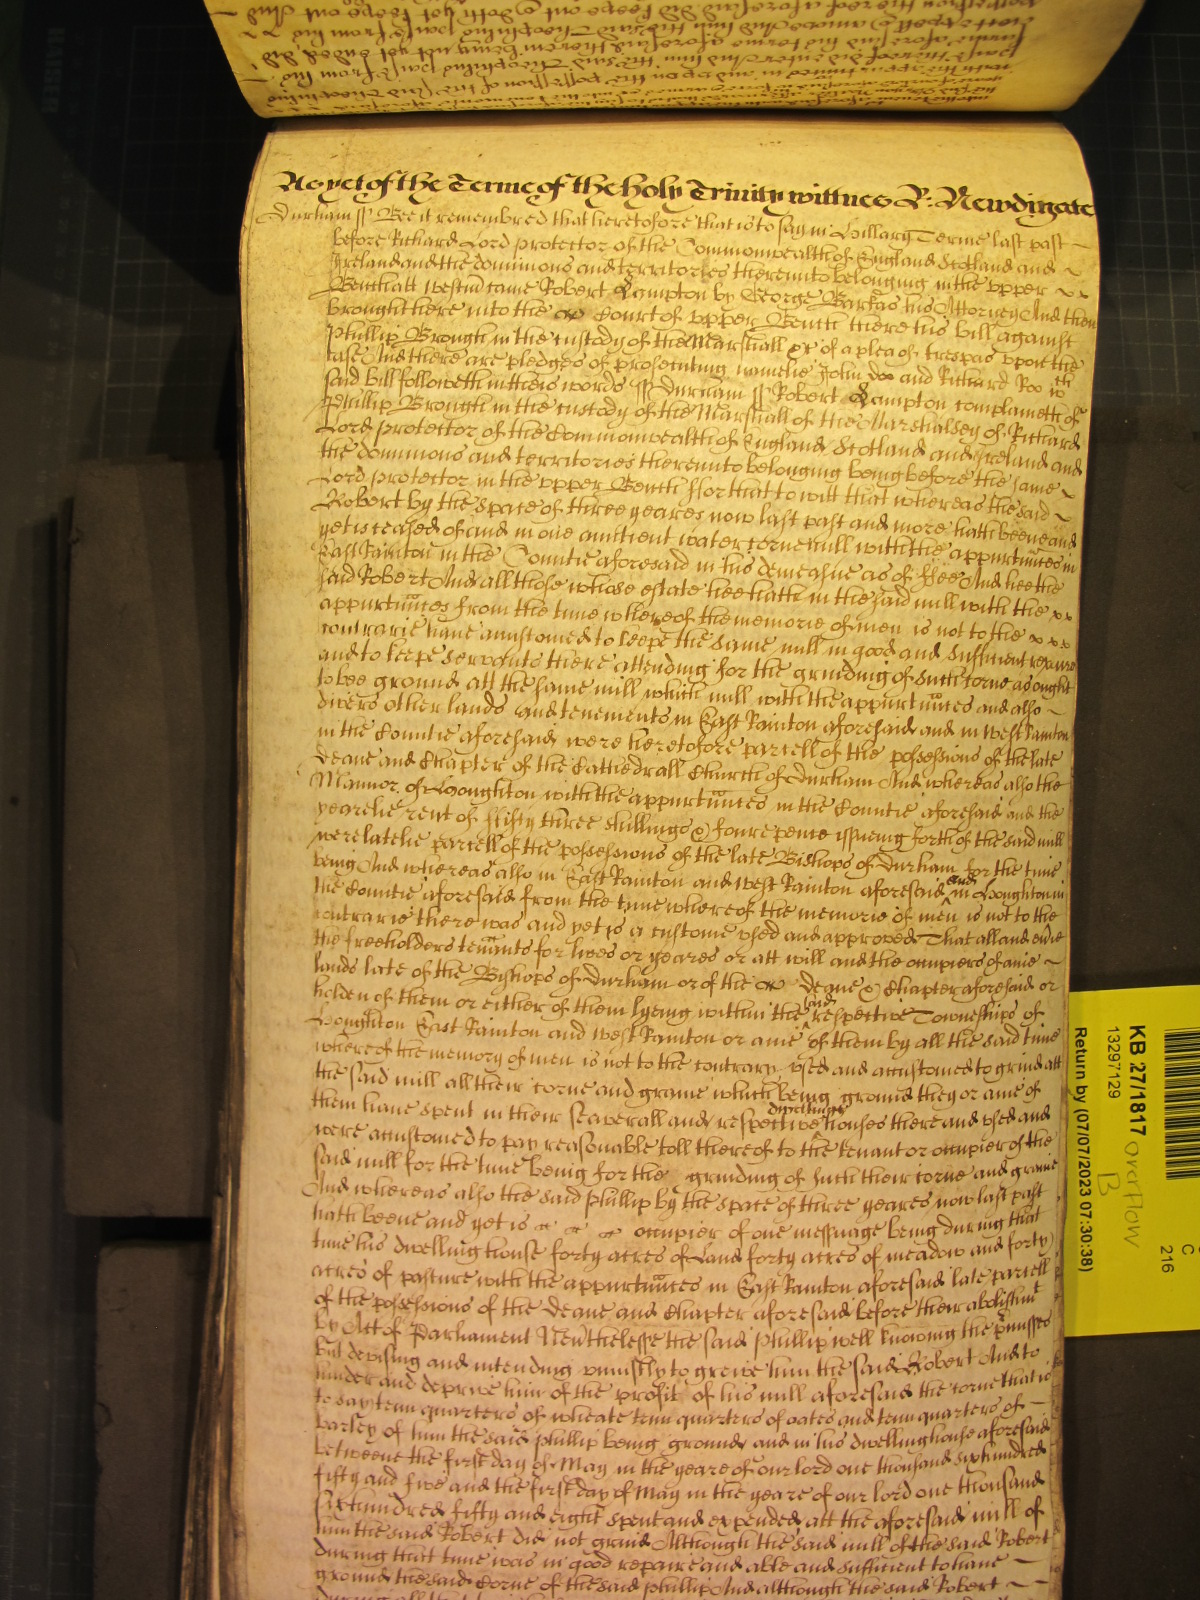 As yet of the Terme of the holy Trinity wittnes R: Newdigate
Durham ss Bee it remembred that heretofore that is to say in Hillary Terme last past
before Richard Lord protector of the Commonwealth of England Scotland and
Ireland and the dominions and territories thereunto belonging in the upper
Bench att westm came Robert Lampton by George Barkas his Attorney And then
brought here into the Court of upper Bench there his bill against
Phillip Brough in the custody of the Marshall &c of a plea of trespas upon the
case And there are pledges of prosecuting namelie John doo and Richard Roo wch
said bill followeth in theis words ss Durham ss Robert Lampton complaineth of
Phillip Brough in the custody of the Marshall of the Marshalsey of Richard
Lord protector of the Commonwealth of England Scotland and Ireland and
the dominions and territories thereunto belonging being before the same
Lord protector in the upper Bench ffor that to witt that whereas the said
Robert by the space of three yeares now last past and more hath beene and
yet is ceased of and in one auntient water corne mill with the appurtunces in
East Rainton in the Countie aforesaid in his demeasne as of ffee And hee the
said Robert And all those whose estate hee hath in the said mill with the
appurtunces from the time whereof the memorie of men is not to the
contrarie have accustomed to keepe the same mill in good and sufficient repaire
and to keepe servants there attending for the grinding of such corne as ought
to bee ground att the same mill which mill with the appurtunces and also
divers other lands and tenements in East Rainton aforesaid and in West Rainton
in the Countie aforesaid were heretofore parcell of the possessions of the late
Deane and Chapter of the Cathedrall Church of Durham And whereas also the
Mannor of Houghton with the appurtunces in the Countie aforesaid and the
yearelie rent of ffifty three shillings & foure pence issueing forth of the said mill
were latelie parcell of the possessions of the late Bishops of Durham for the time
being And whereas also in East Rainton and West Rainton aforesaid and in Houghton in
the Countie aforesaid from the time whereof the memorie of men is not to the
contrarie there was and yet is a custome used and approved That all and everie
the freeholders tenants for lives or yeares or att will and the occupiers of anie
lands late of the Bishops of Durham or of the Deane & Chapter aforesaid or
holden of them or either of them lyeing within the said respective Towneshipps of
Houghton East Rainton and West Rainton or anie of them by all the said time
whereof the memory of men is not to the contrary used and accustomed to grind att
the said mill all their corne and graine which being ground they or anie of
them have spent in their severall and respective dwelling houses there and used and
were accustomed to pay reasonable toll thereof to the tenant or occupier of the
said mill for the time being for the grinding of such their corne and graine
And whereas also the said Phillip by the space of three yeares now last past
hath beene and yet is occupier of one messuage being during that
time his dwelling house forty acres of Land forty acres of meadow and forty
acres of pasture with the appurtunces in East Rainton aforesaid late parcell
of the possessions of the Deane and Chapter aforesaid before their abolishing
by Act of Parliament Neverthelesse the said Phillip well knowing the premisses
but devising and intending uniustly to greive him the said Robert And to
hinder and deprive him of the profitt of his mill aforesaid the corne that is
to say tenn quarters of wheate tenn quarters of oates and tenn quarters of
barley of him the said Phillip being ground and in his dwellinghouse aforesaid
betweene the first day of May in the yeare of our lord one thousand sixhundred
fifty and five and the first day of May in the yeare of our lord one thousand
sixhundred fifty and eight spent and expended att the aforesaid mill of
him the said Robert did not grind Although the said mill of the said Robert
during that time was in good repaire and able and sufficient to have
ground the said Corne of the said Phillip And although the said Robert
KB 27/1817 overflow
13297129
B
Return by (07/07/2023 07:30:38)
C
216